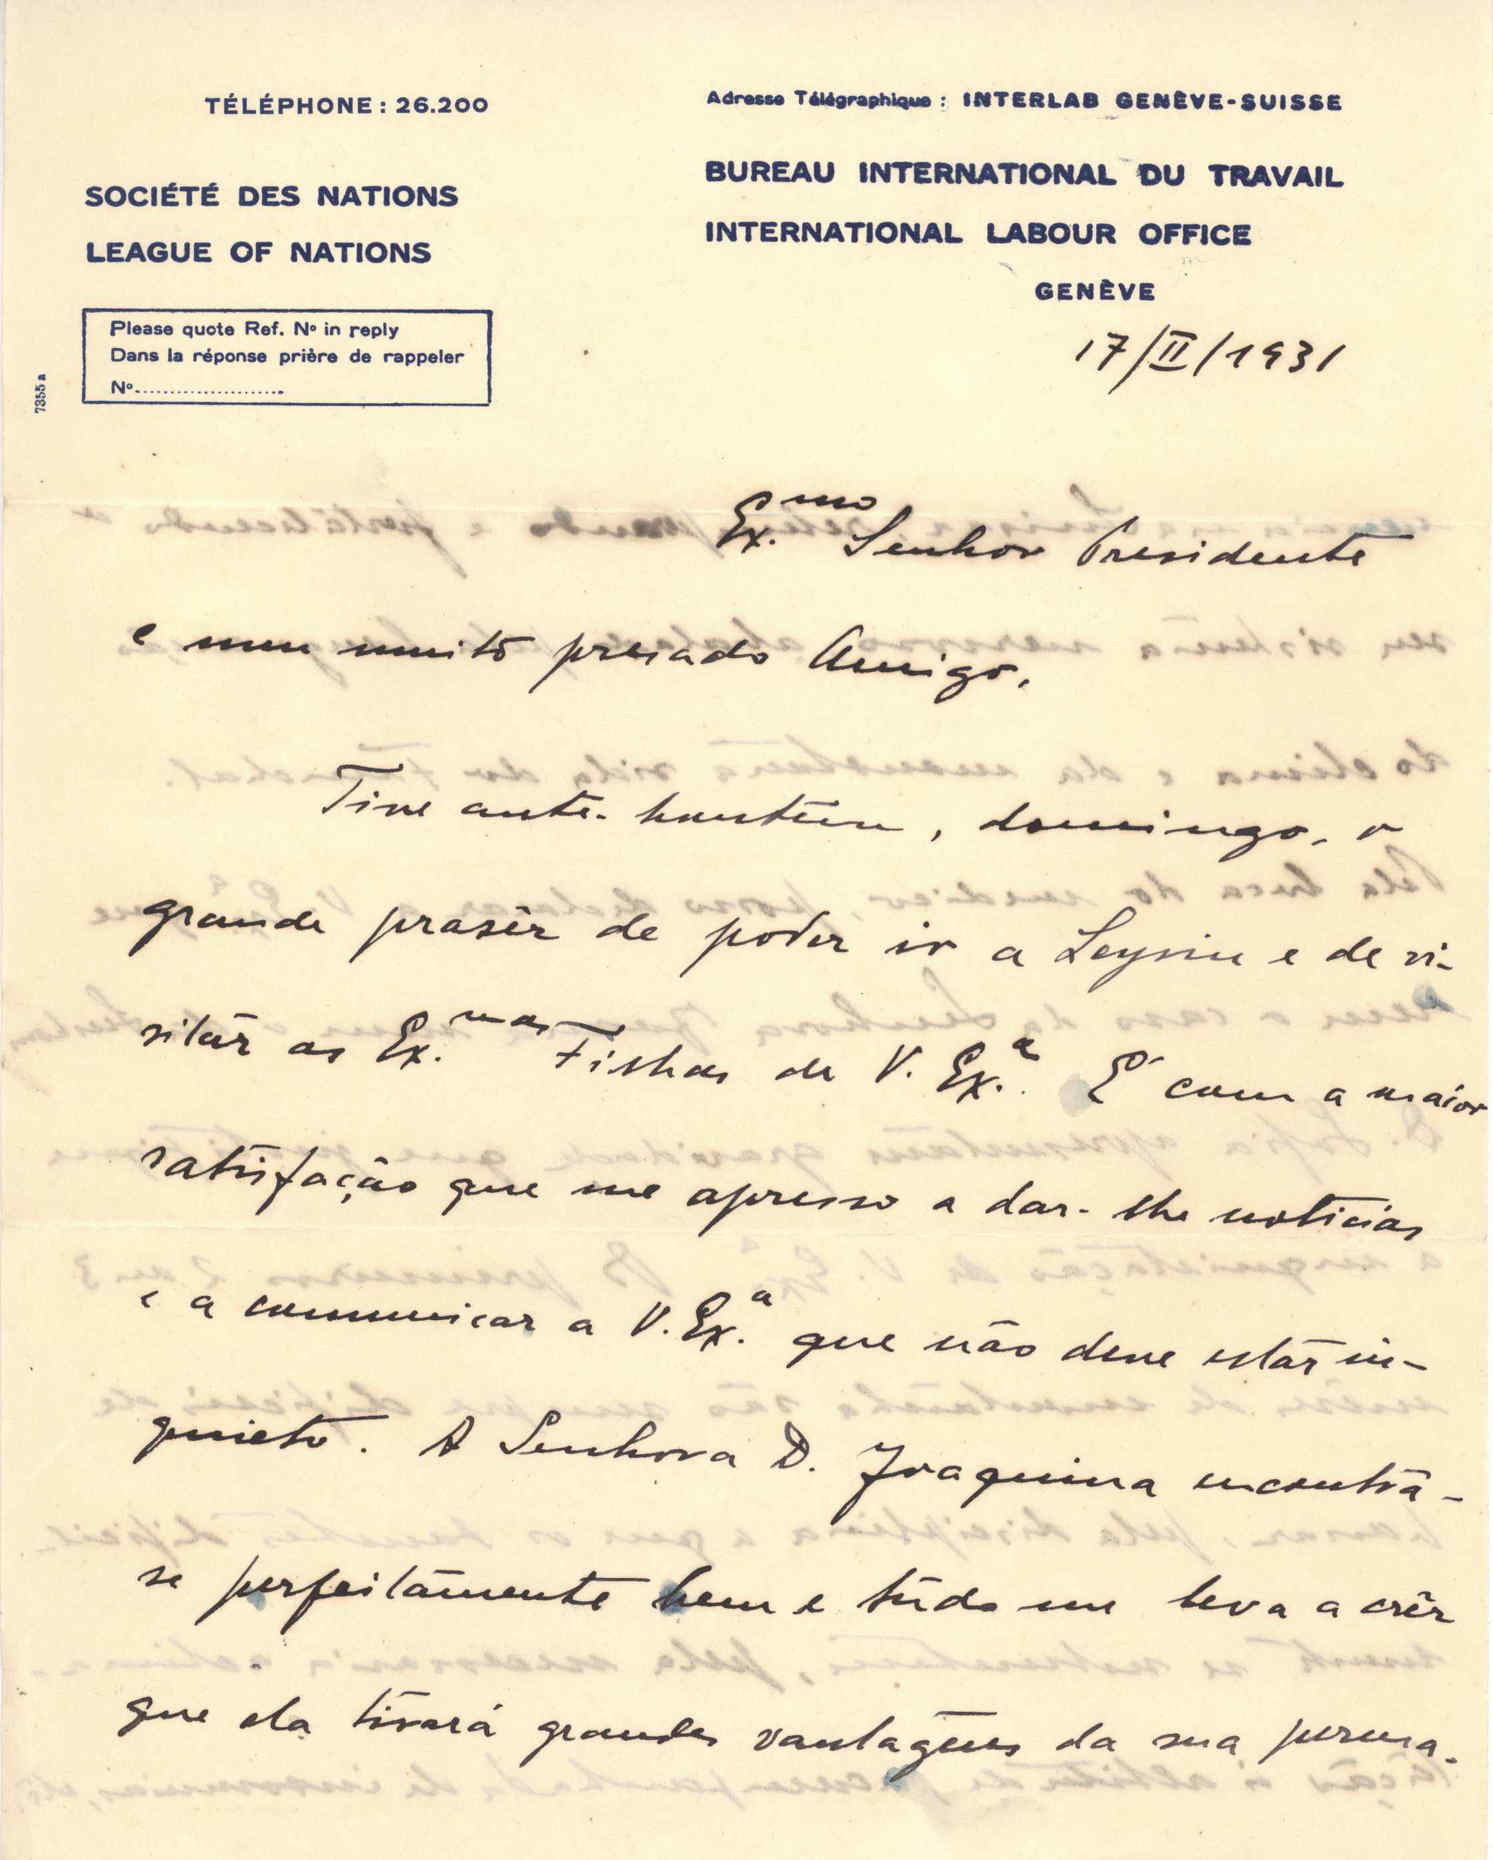 TÉLÉPHONE : 26.200
Adresse Télégraphique : INTERLAB GENÈVE-SUISSE
SOCIÉTÉ DES NATIONS
LEAGUE OF NATIONS
BUREAU INTERNATIONAL DU TRAVAIL
INTERNATIONAL LABOUR OFFICE
GENÈVE
Please quote Ref. Nº in reply
Dans la réponse prière de rappeler
Nº......................
7355 a
17/II/1931
Ex.mo Senhor Presidente
e meu muito presado Amigo,
Tive ante-hontem, domingo, o
grande prasêr de poder ir a Leysin e de vi-
sitar as Ex.mas Filhas de V. Ex.a É com a maior
satisfação que me apresso a dar-lhe noticias
e a comunicar a V. Ex.a que não deve estar in-
quieto. A Senhora D. Joaquina encontra-
se perfeitamente bem e tudo me leva a crêr
que ela tirará grandes vantagens da sua perma-